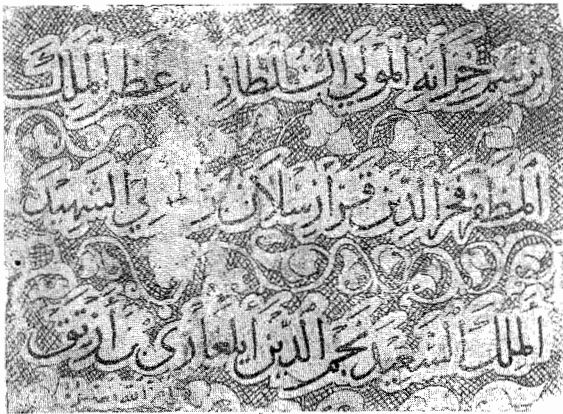 برسم خزانة المولى السلطان الأعظم الملك
المظفر فخر الدين قرا ارسلان بن المولى الشهيد
الملك السعيد نجم الدين ايلغازي بن أرتق